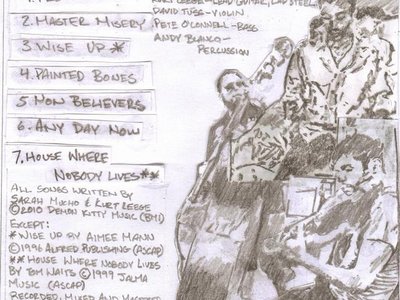 KURT LEEGE - LEAD GUITAR, LAP STEEL
DAVID TUSS - VIOLIN
2. MASTER MISERY
PETE O'CONNELL - BASS
ANDY BLANCO -
PERCUSSION
3. WISE UP *
4. PAINTED BONES
5. NON BELIEVERS
6. ANY DAY NOW
7. HOUSE WHERE
NOBODY LIVES **
ALL SONGS WRITTEN BY
SARAH MUCHO & KURT LEEGE
©2010 DEMON KITTY MUSIC (BMI)
EXCEPT:
* WISE UP BY AIMEE MANN
©1996 ALFRED PUBLISHING (ASCAP)
** HOUSE WHERE NOBODY LIVES
BY TOM WAITS ©1999 JALMA
MUSIC (ASCAP)
RECORDED, MIXED AND MASTERED